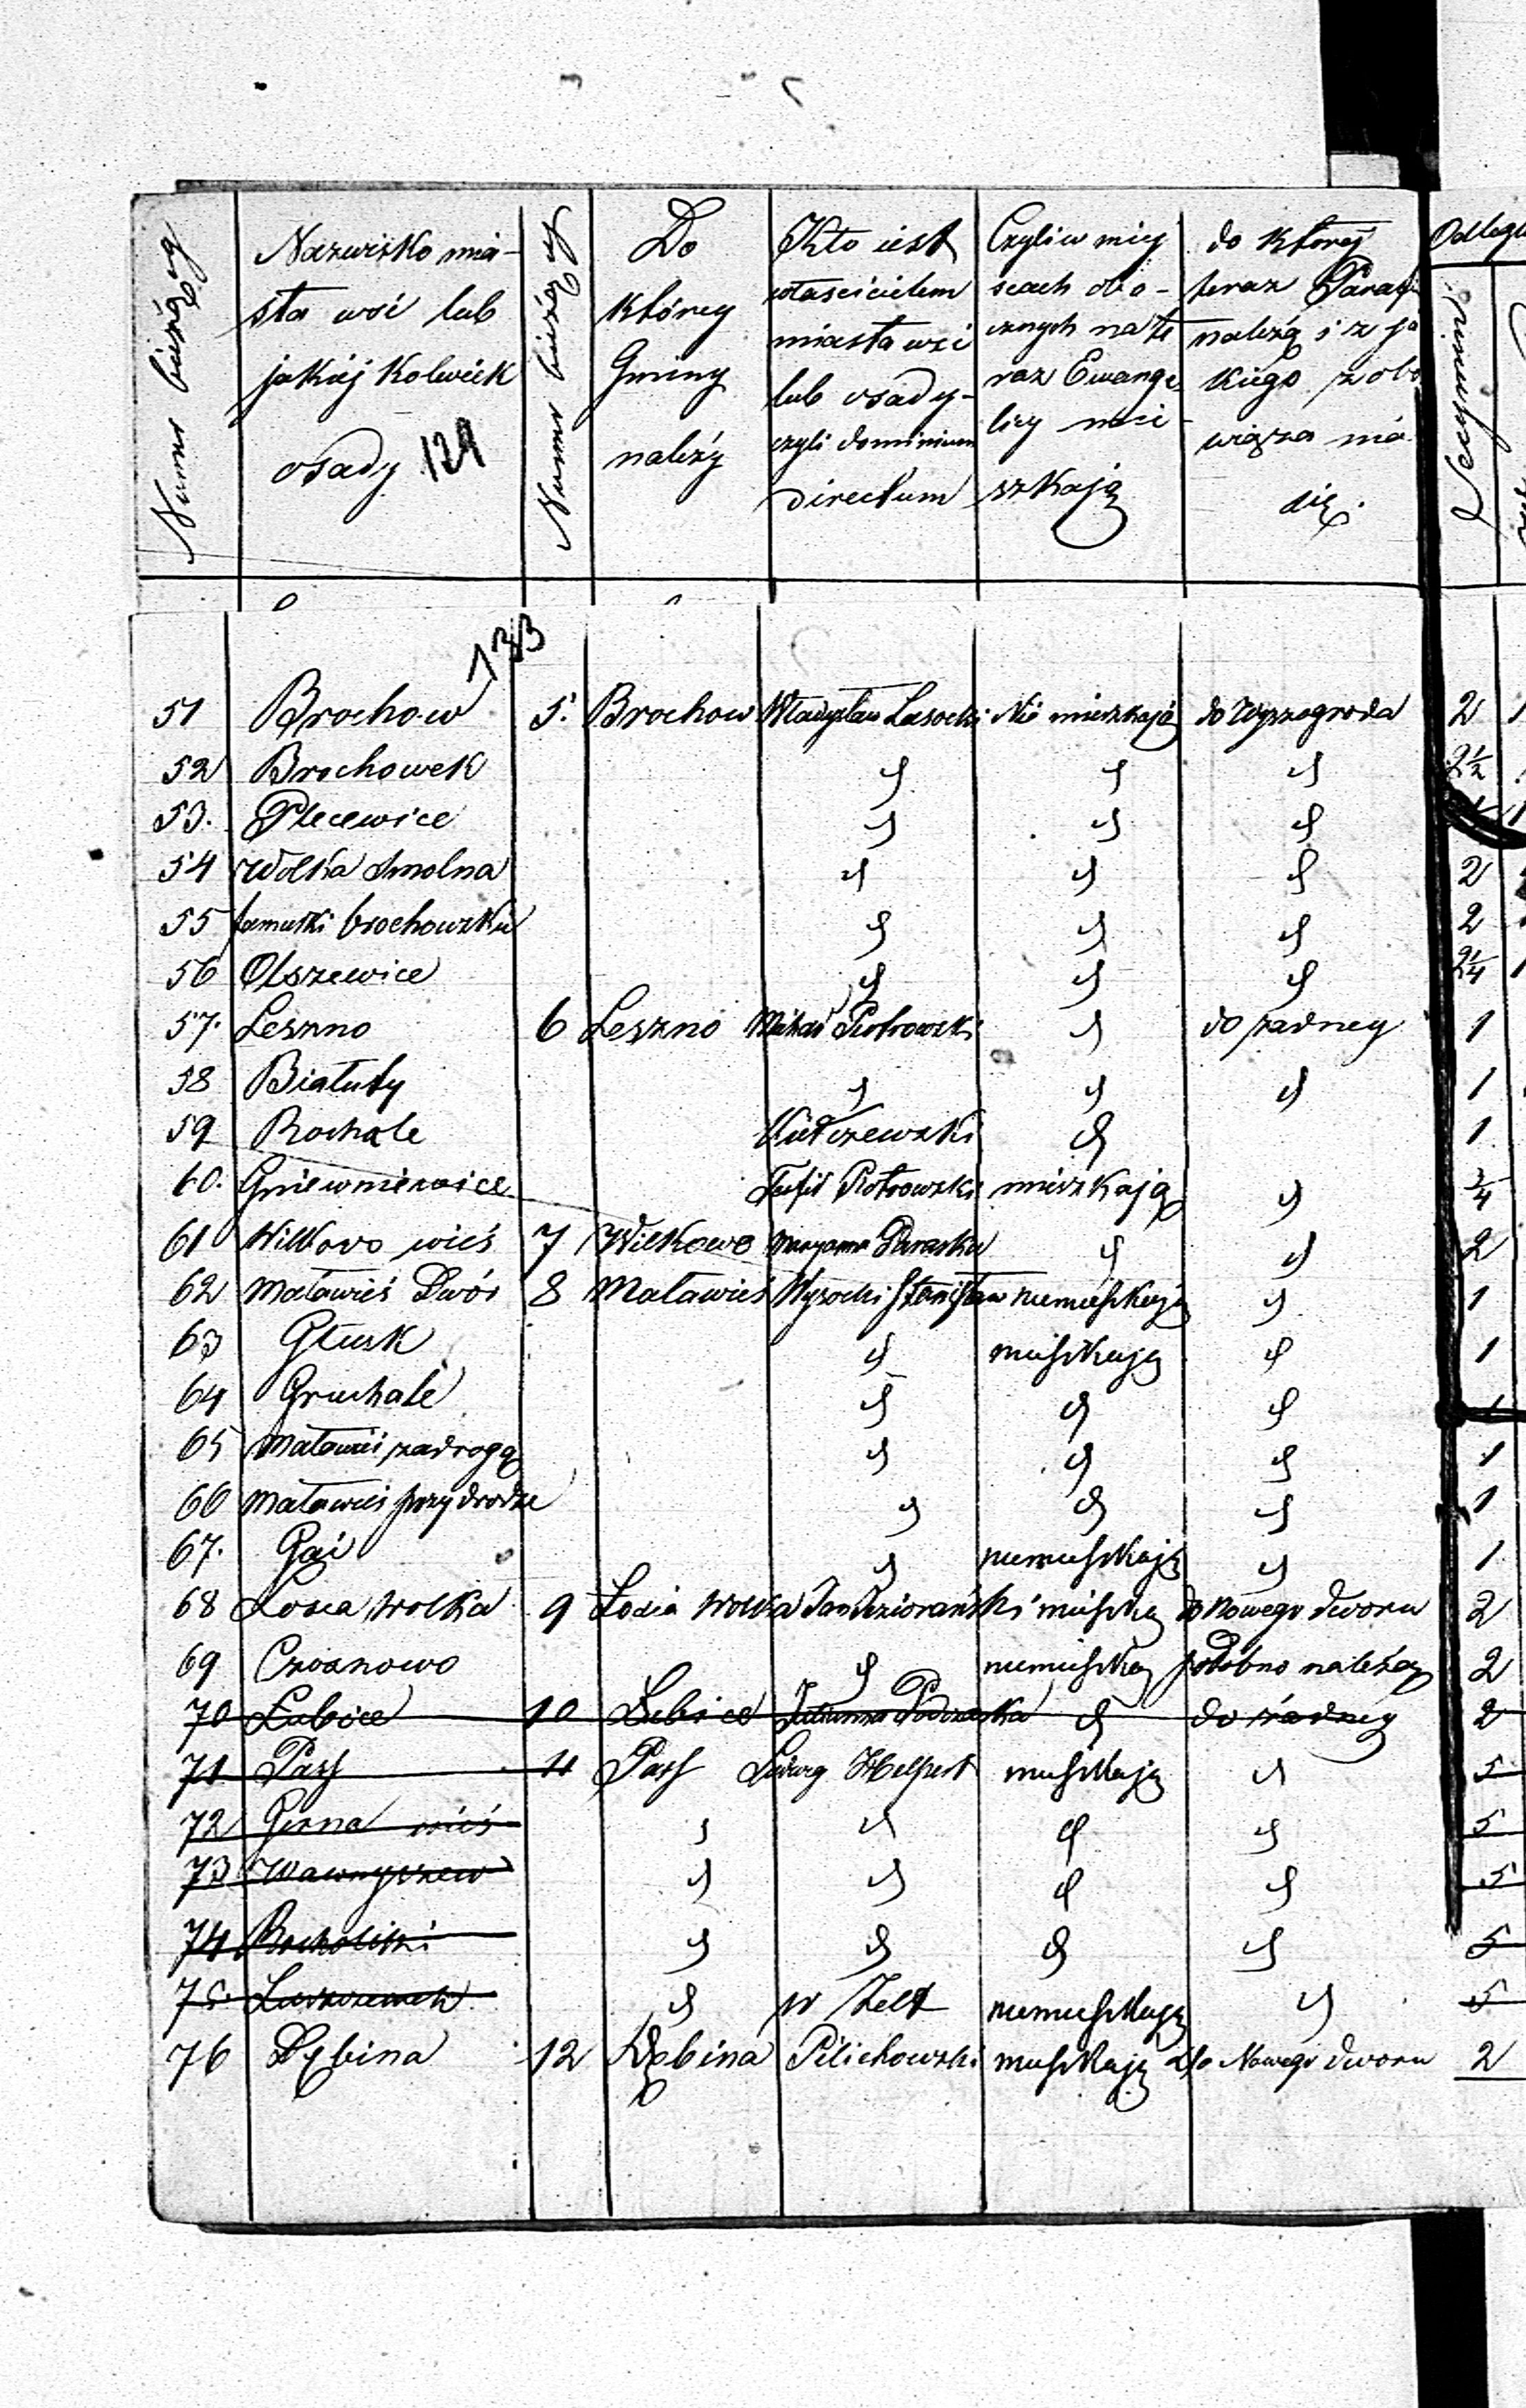 Numer bieżący
Nazwisko mia-
sta wsi lub
jakiej kolwiek
osady 129
Numer bieżący
Do
którey
Gminy
należy
Kto iest
właścicielem
miasta wsi
lub osady-
czyli dominium
directum
Czyli w miey
scach obo-
cznych na te
raz Ewange
licy mie-
szkają
do której
teraz Parafi
należą i z ja
kiego zobo
wiąza nia
się.
Odległ
133
51 Brochow 5. Brochow Władysław Lasocki Nie mieszkają do Wyszogroda 2 1
52 Brochowek 2½
53. Plecewice 1
54 Wolka Smolna 2
55 famułki brochowskie 2
56 Olszewice 2¼ 1
57. Leszno 6 Leszno Michał Piotrowski do żadney 1
58 Białuty 1
59 Rochale 1
60. Gniewniewice Piotrowski mieszkają ¾
61 Wilkowo wieś 7 Wilkowo 2
62 Maławieś Dwór 8 Maławieś Wysocki Stanisław niemieszkają 1
63 Głusk mieszkają 1
64 Gruchale 1
65 Maławieś zadrogą 1
66 Maławieś przydrodze 1
67. Gai niemieszkają 1
68 Łosia Wolka 9 Łosia Wolka Jan Jeziorański mieszką do Nowego dworu 2
69 Czosnowo niemieszką podobno należą 2
70 Łubice 10 Łubice Julianna do żadney 2
71. Pass 11 Pass Ludwig mieszkają 5
72 Gorna wieś 5
73 Wawrzyszew 5
74 Rocholiski 5
75. niemieszkają 5
76 Dębina 12 Dębina Pilichowski mieszkają do Nowego dworu 2